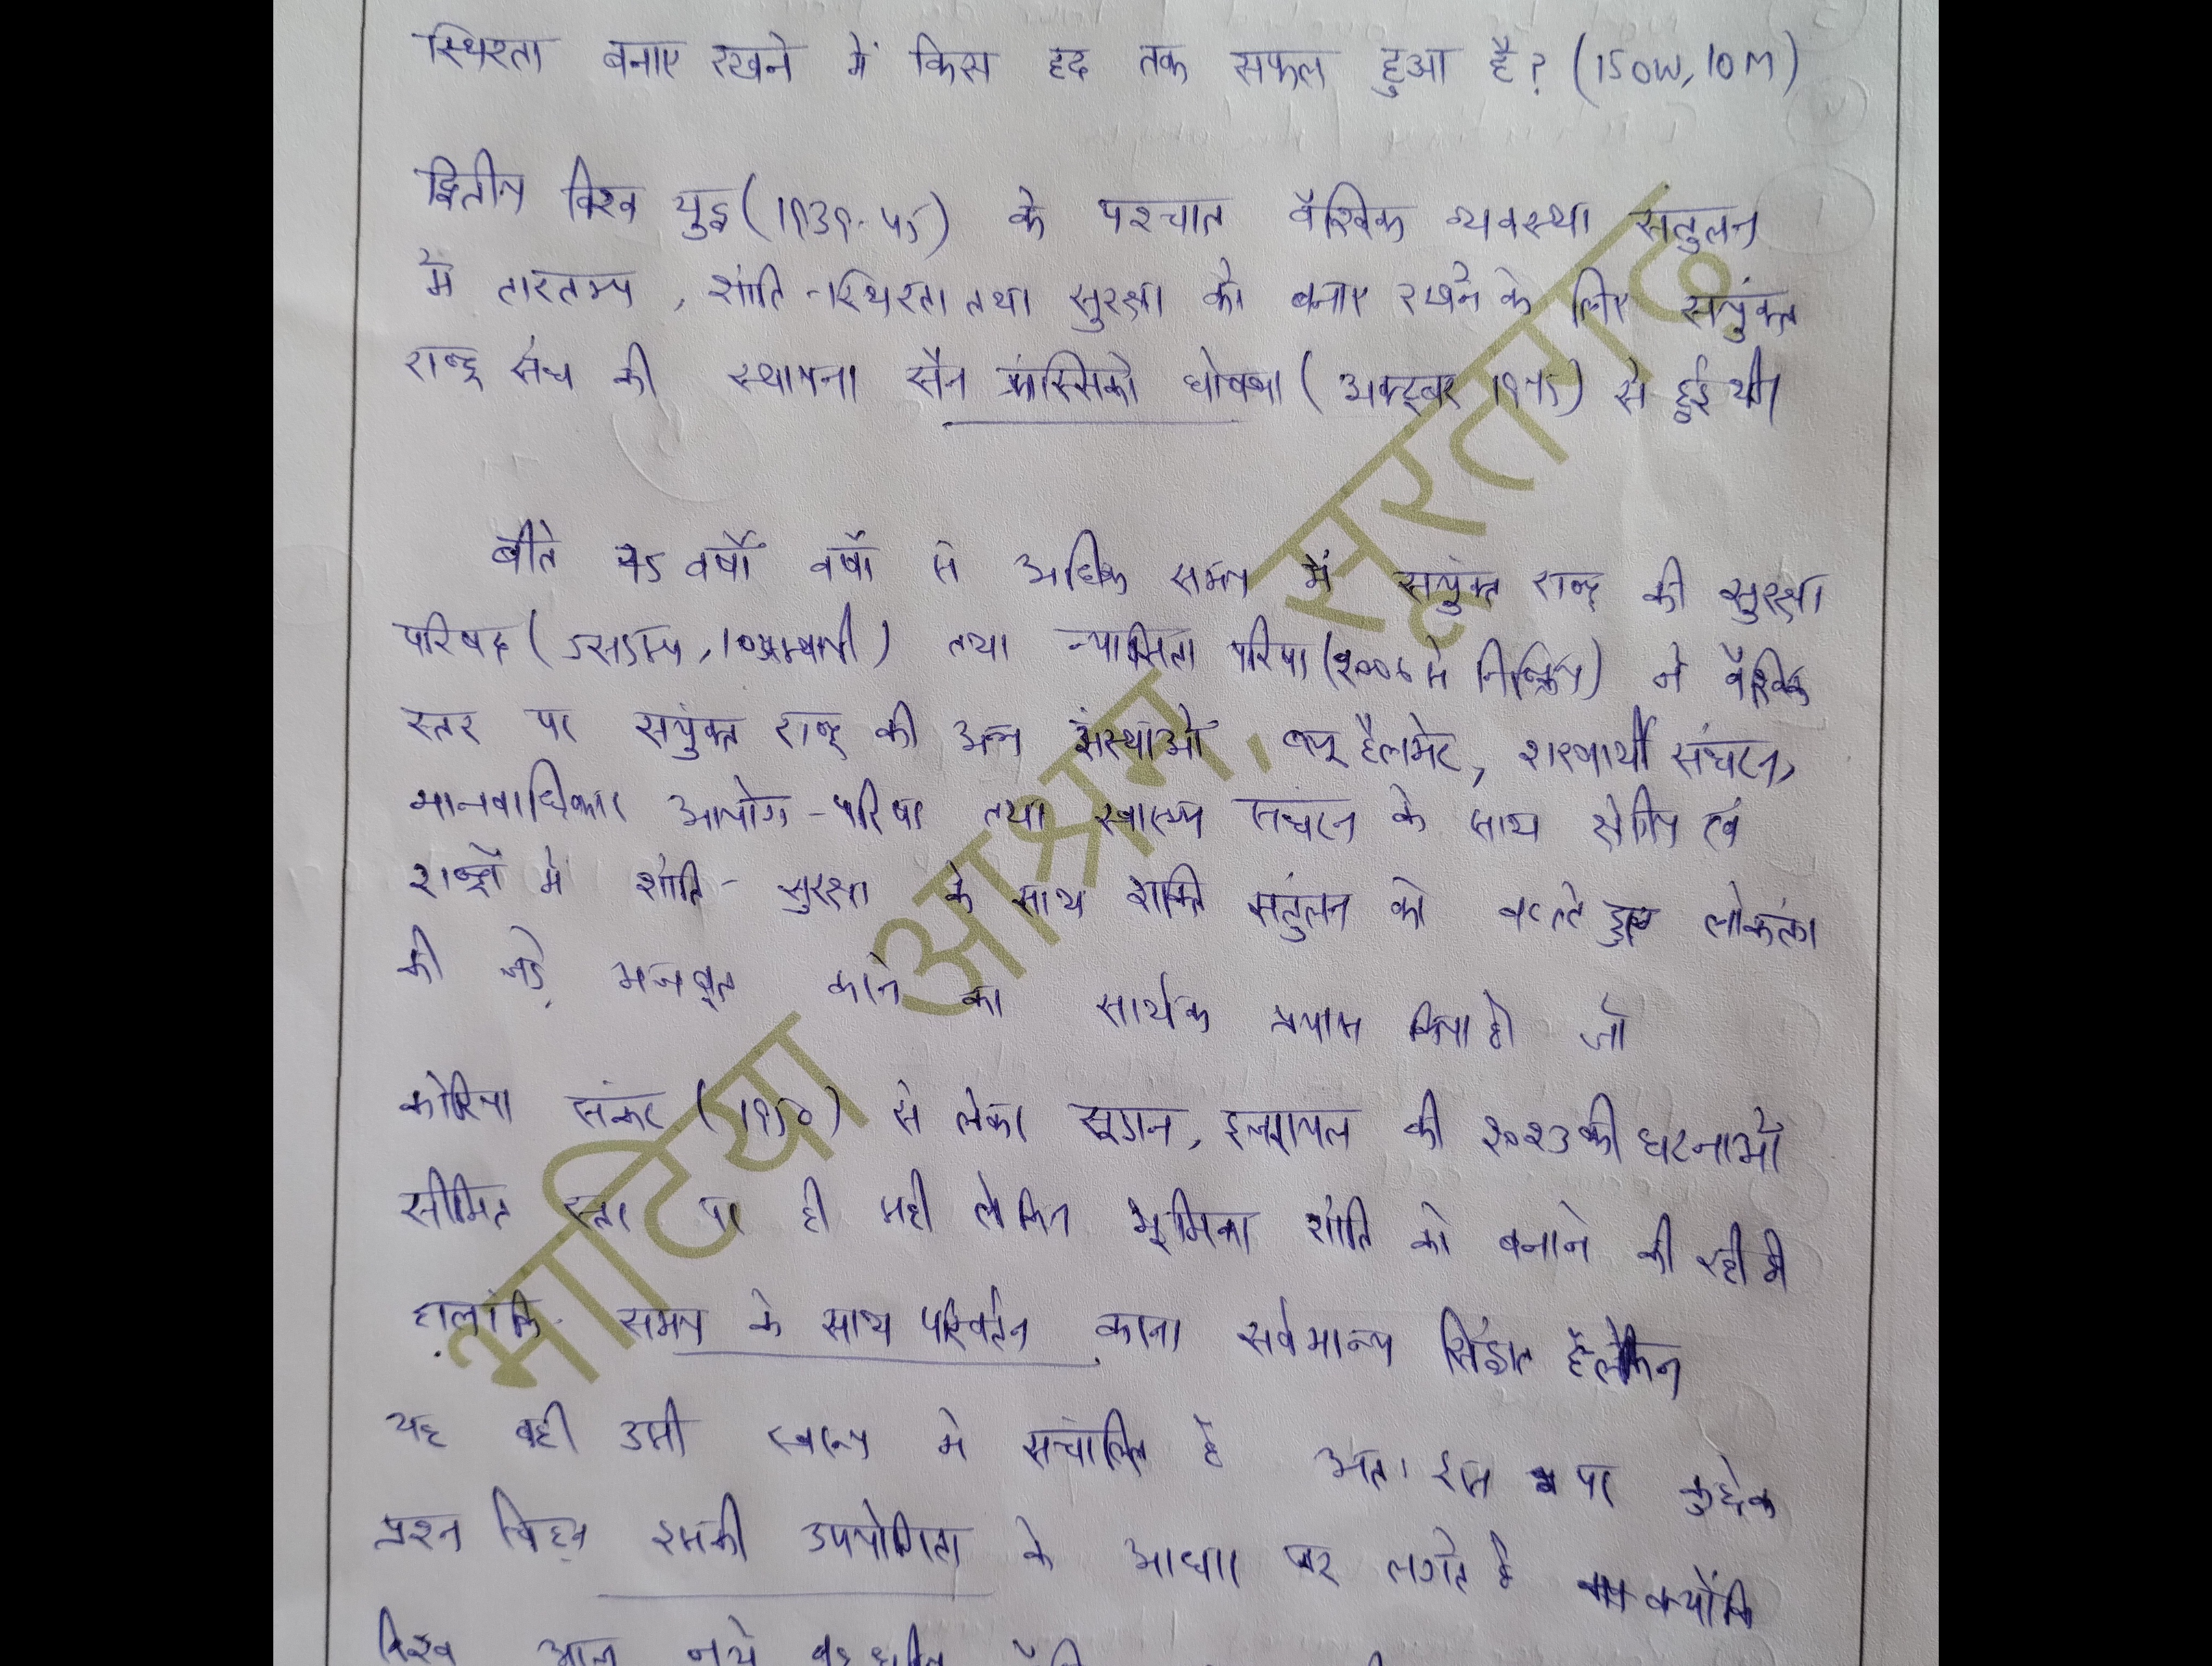 स्थिरता बनाए रखने में किस हद तक सफल हुआ है? (150W, 10M)
द्वितीय विश्व युद्ध (1939-45) के पश्चात वैश्विक व्यवस्था संतुलन
में तारतम्य, शांति-स्थिरता तथा सुरक्षा को बनाए रखने के लिए संयुक्त
राष्ट्र संघ की स्थापना सैन फ्रांसिस्को घोषणा (अक्टूबर 1945) से हुई थी।
बीते 75 वर्षों वर्षों से अधिक समय में संयुक्त राष्ट्र की सुरक्षा
परिषद ( तथा न्यासिता परिषद (2006 में निष्क्रिय) ने वैश्विक
स्तर पर संयुक्त राष्ट्र की अन्य संस्थाओं ब्लू हैलमेट, शरणार्थी संघटन,
मानवाधिकार आयोग-परिषद तथा स्वास्थ्य संघटन के साथ क्षेत्रीय एवं
राष्ट्रों में शांति-सुरक्षा के साथ शक्ति संतुलन को हुए लोकतंत्र
की जड़ें मजबूत करने का सार्थक प्रयास किया है। जो
कोरिया संकट (1950) से लेकर सूडान, इजरायल की 2023 की घटनाओं
सीमित स्तर पर ही सही लेकिन भूमिका शांति को बनाने की रही है
हालांकि समय के साथ परिवर्तन करना सर्वमान्य सिद्धांत है लेकिन
यह वही उसी स्वरूप में संचालित है अतः इस पर कुछेक
प्रश्न चिह्न इसकी उपयोगिता के आधार पर लगते है क्योंकि
विश्व आज नये बहुध्रुवीय
भाटिया आश्रम, सूरतगढ़